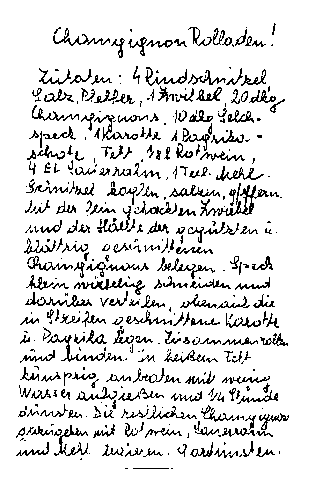 Champignon Rolladen!
Zutaten: 4 Rindschnitzel
Salz, Pfeffer, 1 Zwiebel, 20 dkg
Champignons, 10 dkg Selch-
speck, 1 Karotte 1 Paprika-
schote, Fett, 1/8 l Rotwein,
4 EL Sauerrahm, 1 Teel. Mehl.
Schnitzel klopfen, salzen, pfeffern.
Mit der fein gehackten Zwiebel
und der Hälfte der geputzten u.
blättrig geschnittenen
Champignons belegen. Speck
klein würfelig schneiden und
darüber verteilen, obenauf die
in Streifen geschnittene Karotte
u. Paprika legen. Zusammenrollen
und binden. In heißem Fett
knusprig anbraten mit wenig
Wasser aufgießen und 1/4 Stunde
dünsten. Die restlichen Champignons
dazugeben mit Rotwein, Sauerrahm
und Mehl